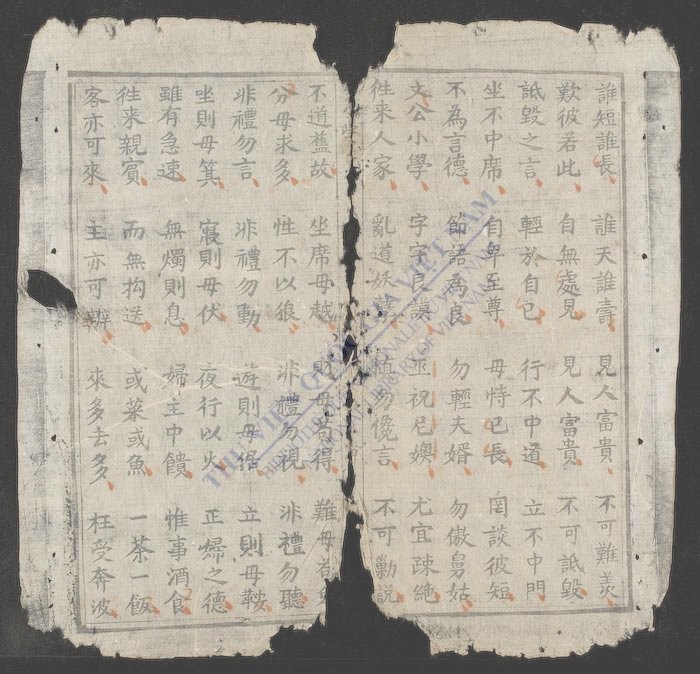 誰短誰長 誰夭誰壽 見人富貴 不可難羨
歎彼若此 自無處見 見人富貴 不可詆毀
詆毀之言 輕於自已 行不中道 立不中門
坐不中席 自卑至尊 毋恃已長 罔談彼短
不為言德 節語為良 勿輕夫婿 勿傲舅姑
文公小學 字字良謨 巫祝尼媼 尤宜疎絕
徃来人家 亂道妖 勿儳言 不可勦説
不道舊故 坐席毋越 毋苟得 難毋
分毋求多 性不以狼 非禮勿視 非禮勿聽
非禮勿言 非禮勿動 遊則毋倨 立則毋鞍
坐則毋箕 寢則毋伏 夜行以火 正婦之德
雖有急速 無燭則息 婦主中饋 惟事酒食
徃来親賓 而無拘送 或菜或魚 一茶一飯
客亦可來 主亦可辨 來多去多 枉受奔波
THƯ VIỆN QUỐC GIA VIỆT NAM
NATIONAL LIBRARY OF VIETNAM